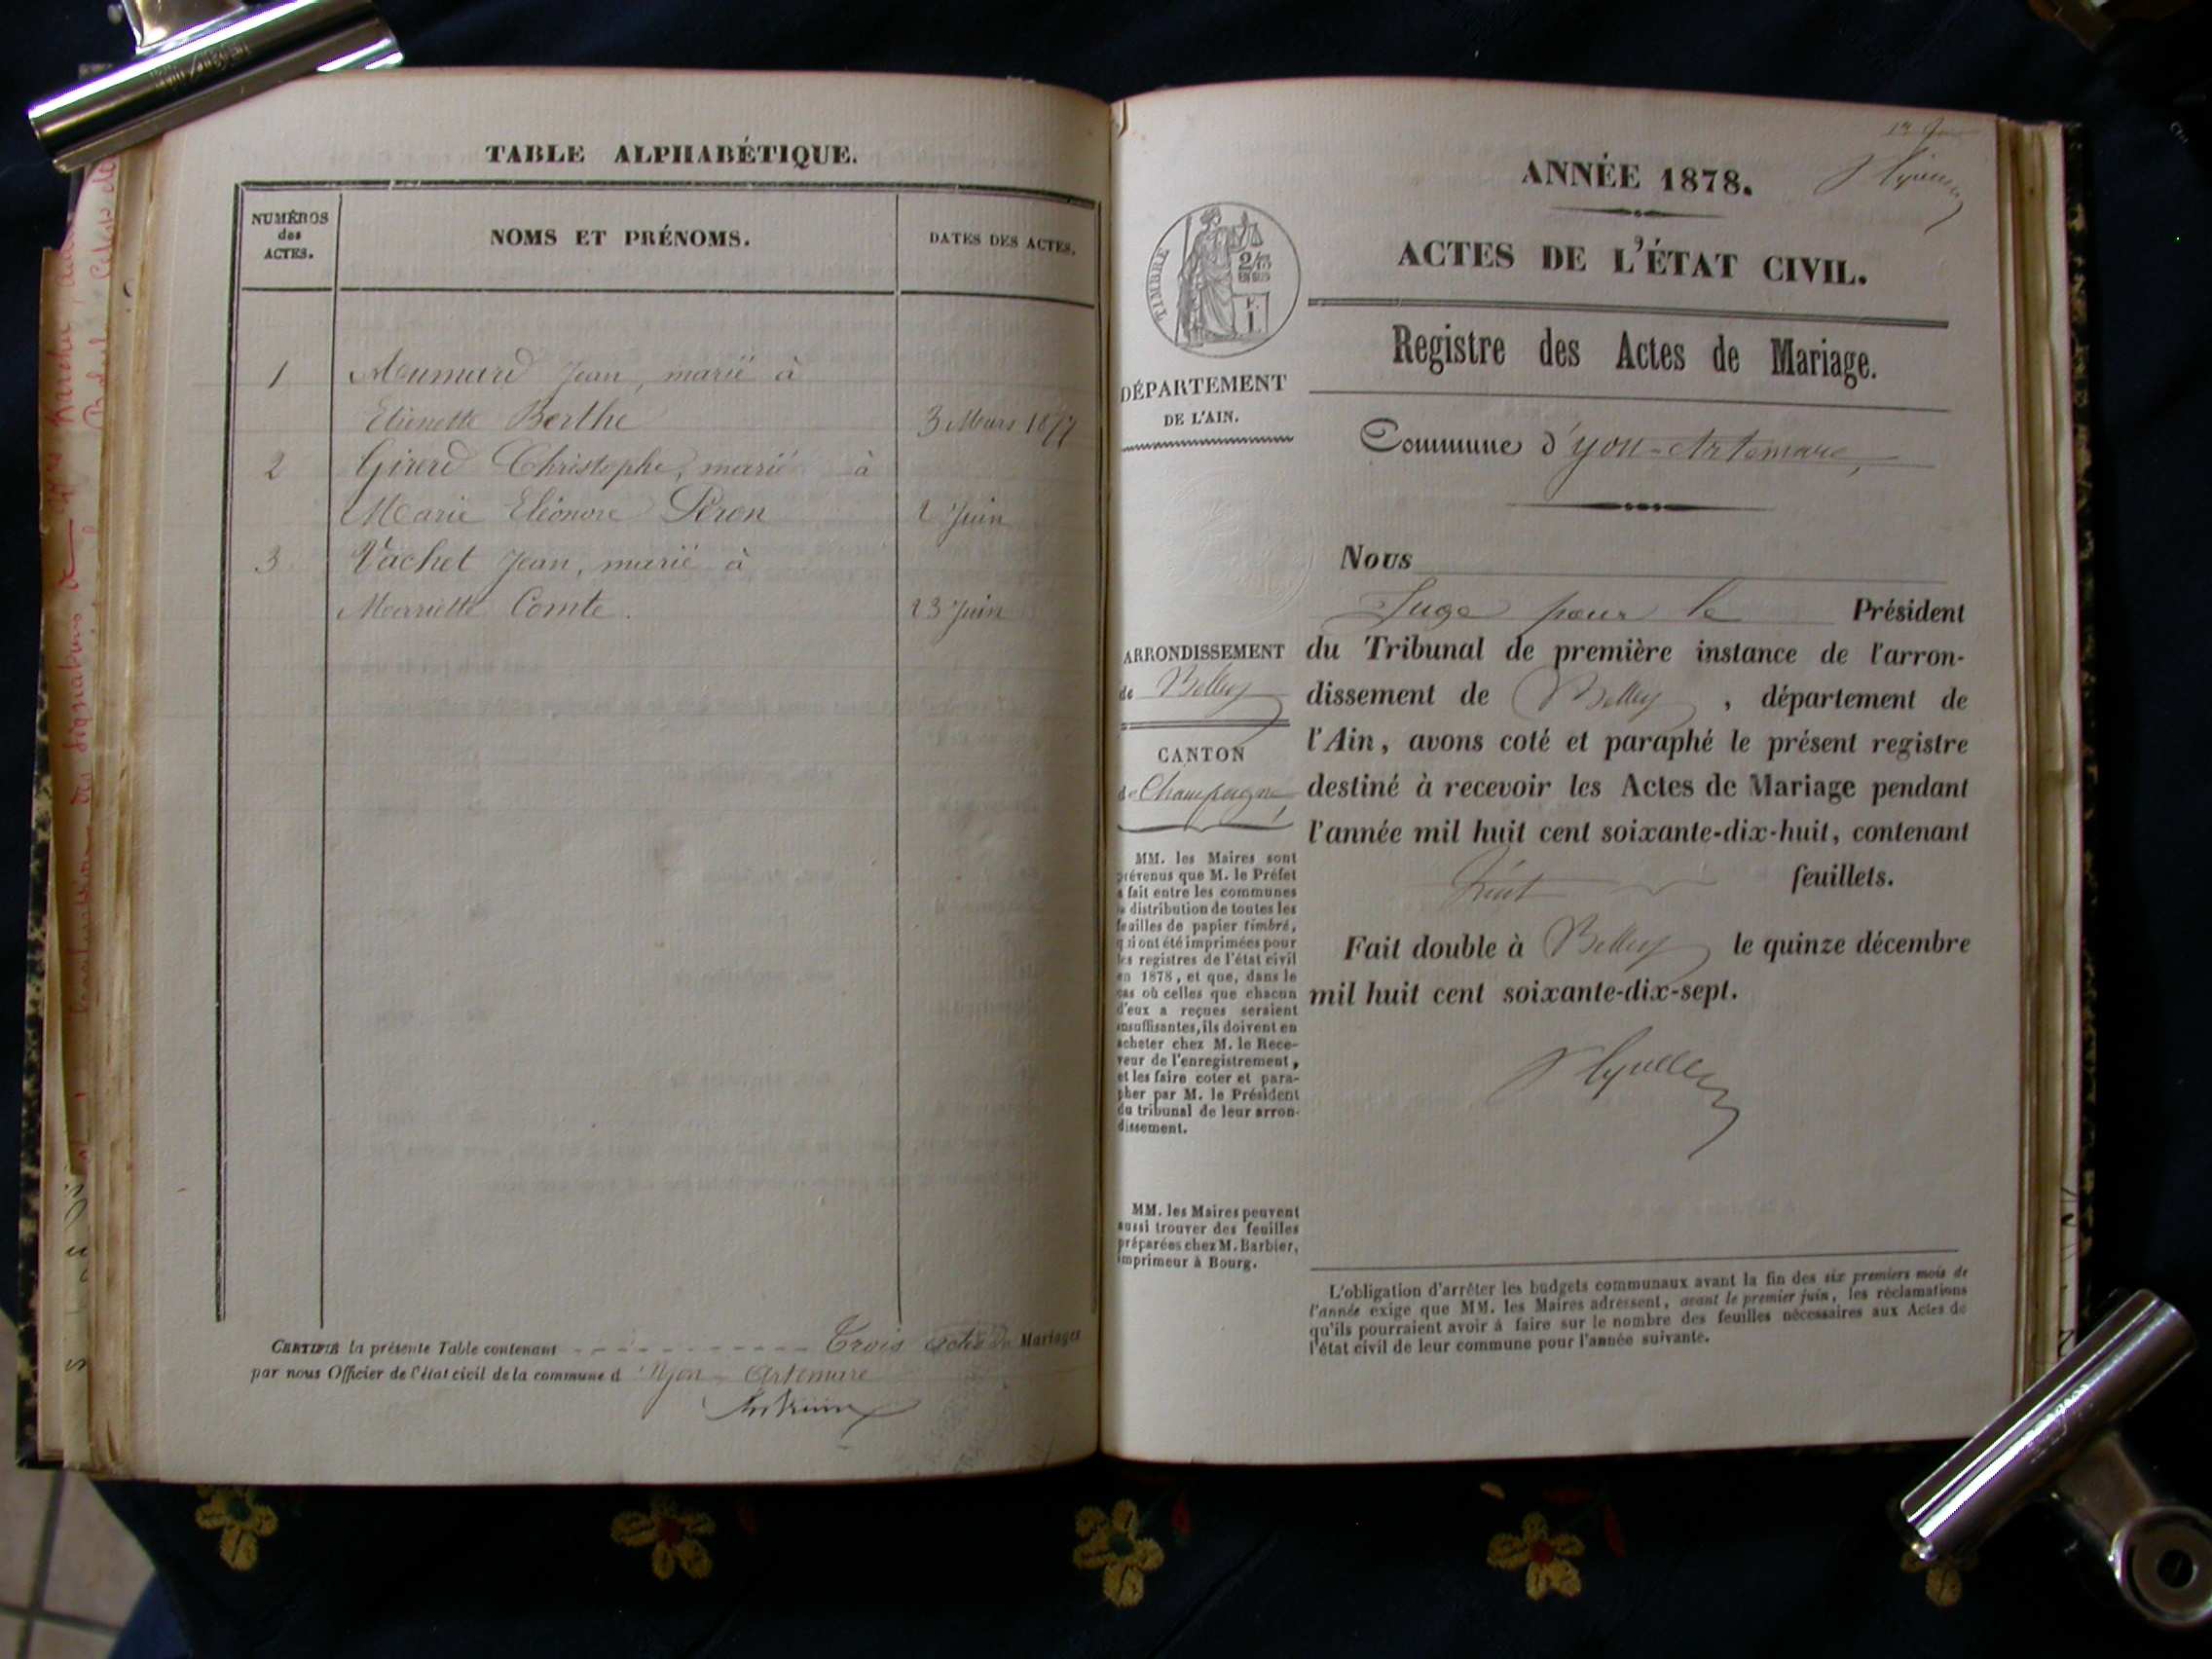 TABLE ALPHABÉTIQUE.
NUMÉROS
des
ACTES.
NOMS ET PRÉNOMS.
DATES DES ACTES.
1 Meunard Jean, marié à
Etienette Berthe 3 Mars 1877
2 Girerd Christophe, marié à
Marie Eléonore Péron 2 Juin
3 Vachet Jean, marié à
Marriette Comte. 23 Juin
CERTIFIÉ la présente Table contenant Trois actes de Mariages
par nous Officier de l'état civil de la commune d'Yon-Artemare
ANNÉE 1878.
ACTES DE L'ÉTAT CIVIL.
TIMBRE
Registre des Actes de Mariage.
DÉPARTEMENT
DE L'AIN.
Commune d'Yon-Artemare,
Nous
Juge pour le Président
du Tribunal de première instance de l'arron-
dissement de Belley, département de
l'Ain, avons coté et paraphé le présent registre
destiné à recevoir les Actes de Mariage pendant
l'année mil huit cent soixante-dix-huit, contenant
huit feuillets.
Fait double à Belley le quinze décembre
mil huit cent soixante-dix-sept.
ARRONDISSEMENT
de Belley
CANTON
de Champagne,
MM. les Maires sont
prévenus que M. le Préfet
a fait entre les communes
la distribution de toutes les
feuilles de papier timbré,
qui ont été imprimées pour
les registres de l'état civil
en 1878, et que, dans le
cas où celles que chacun
d'eux a reçues seraient
insuffisantes, ils doivent en
acheter chez M. le Rece-
veur de l'enregistrement,
et les faire coter et para-
pher par M. le Président
du tribunal de leur arron-
dissement.
MM. les Maires peuvent
aussi trouver des feuilles
préparées chez M. Barbier,
imprimeur à Bourg.
L'obligation d'arrêter les budgets communaux avant la fin des six premiers mois de
l'année exige que MM. les Maires adressent, avant le premier juin, les réclamations
qu'ils pourraient avoir à faire sur le nombre des feuilles nécessaires aux Actes de
l'état civil de leur commune pour l'année suivante.